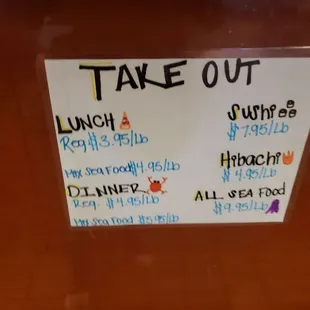 TAKE OUT
LUNCH
Reg $3.95/Lb
Mix Sea Food $4.95/Lb
DINNER
Reg. $4.95/Lb
Mix Sea Food $5.95/Lb
Sushi
$7.95/Lb
Hibachi
$4.95/Lb
ALL SEA Food
$9.95/Lb